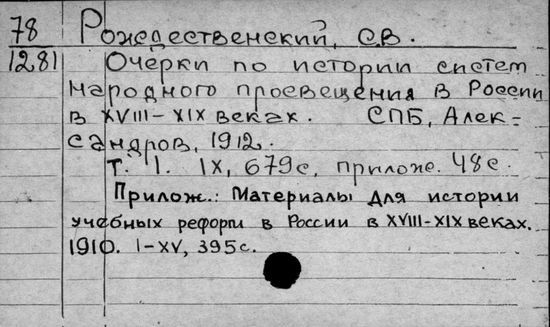 78 Рождественский, С.В.
1281 Очерки по истории систем
народного просвещения в России
в XVIII-XIX веках. СПБ, Алек-
сандров, 1912.
Т. 1. IX, 679с, прилож. 48с.
Прилож.: Материалы для истории
учебных реформ в России в XVIII-XIX веках.
1910. I-XV, 395с.